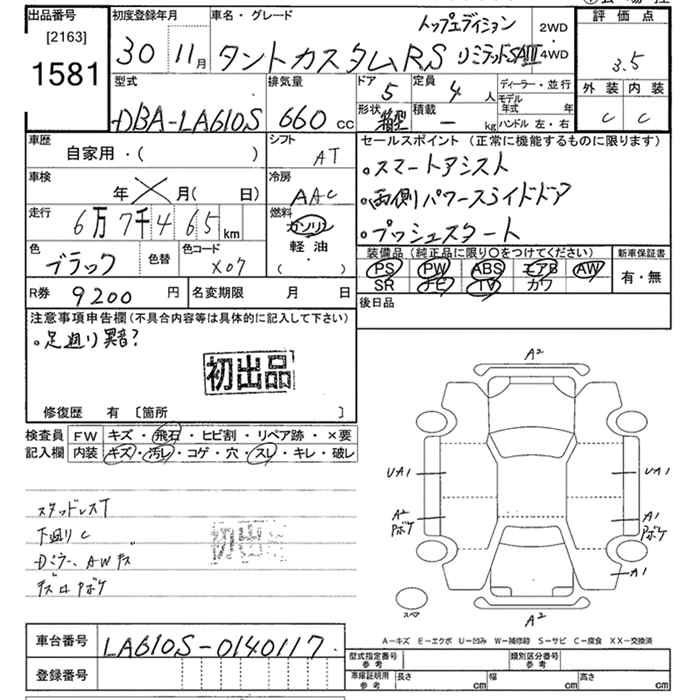 出品番号
[2163]
1581
初度登録年月
30 11月
車名・グレード
トップエディション
タントカスタムRS リミテッドSAⅢ
2WD
・
4WD
評価点
3.5
外装 内装
C C
型式
DBA-LA610S
排気量
660 cc
ドア
5
定員
4 人
形状
箱型
積載
― kg
ディーラー・並行
モデル年式 年
ハンドル 左・右
車歴
自家用・( )
シフト
AT
車検
年 月( 日)
冷房
AAC
走行
6万7千465 km
燃料
ガソリン
軽油
( ・ )
色
ブラック
色替
色コード
X07
R券 9200 円
名変期限 月 日
セールスポイント (正常に機能するものに限ります)
。スマートアシスト
。両側パワースライドドア
。プッシュスタート
装備品(純正品に限り〇をつけてください)
PS PW ABS エアB AW
SR ナビ TV カワ
新車保証書
有・無
後日品
注意事項申告欄(不具合内容等は具体的に記入して下さい)
。足廻り異音?
初出品
修復歴 有 〔箇所 〕
検査員
記入欄
FW キズ・飛石・ヒビ割・リペア跡・×要
内装 キズ・汚レ・コゲ・穴・スレ・キレ・破レ
スタッドレスT
下廻りC
Dミラー、AWキズ
キズロPボケ
初出品
A2
UA1
UA1
A2
Pボケ
A1
Pボケ
A1
スペア
A2
A―キズ E―エクボ U―凹み W―補修跡 S―サビ C―腐食 XX―交換済
車台番号 LA610S-0140117
登録番号
型式指定番号
参考
類別区分番号
参考
車庫証明用
参考
長さ cm
幅 cm
高さ cm